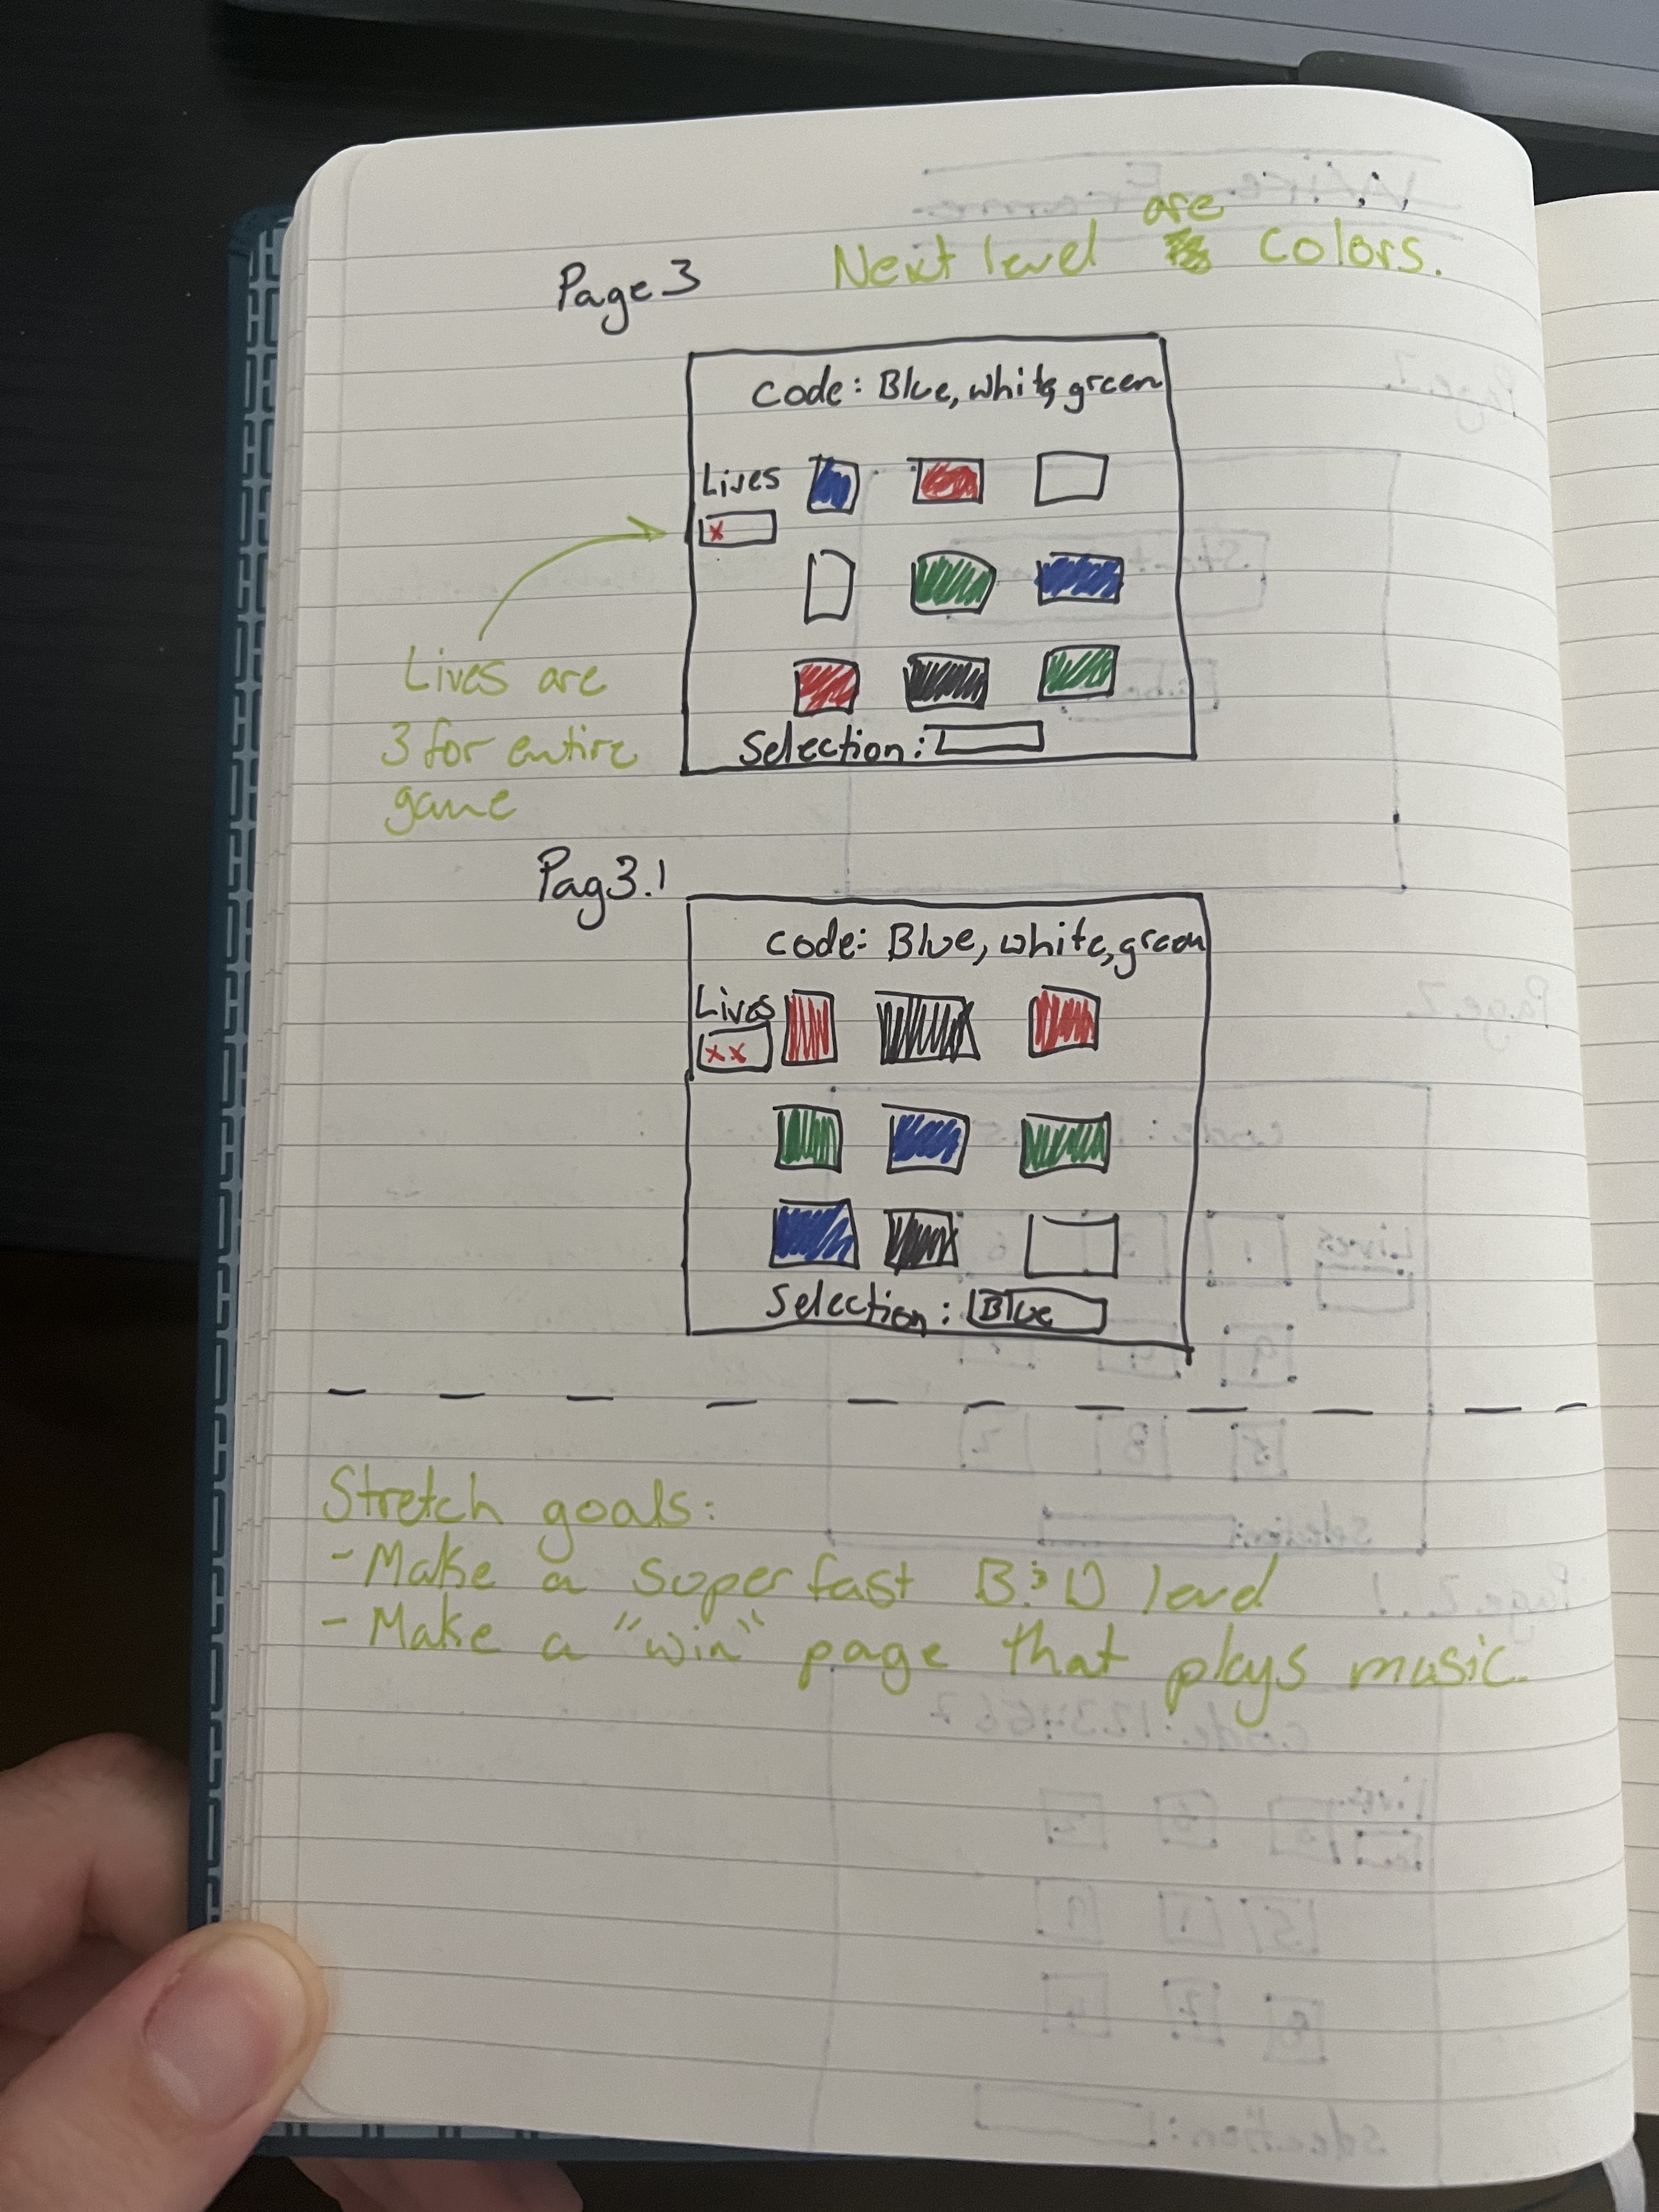 Next level are colors.
Page 3
Code: Blue, white, green
Lives
x
Selection:
Lives are
3 for entire
game
Pag3.1
code: Blue, white, green
Lives
xx
Selection: Blue
Stretch goals:
- Make a super fast level
- Make a "win" page that plays music.